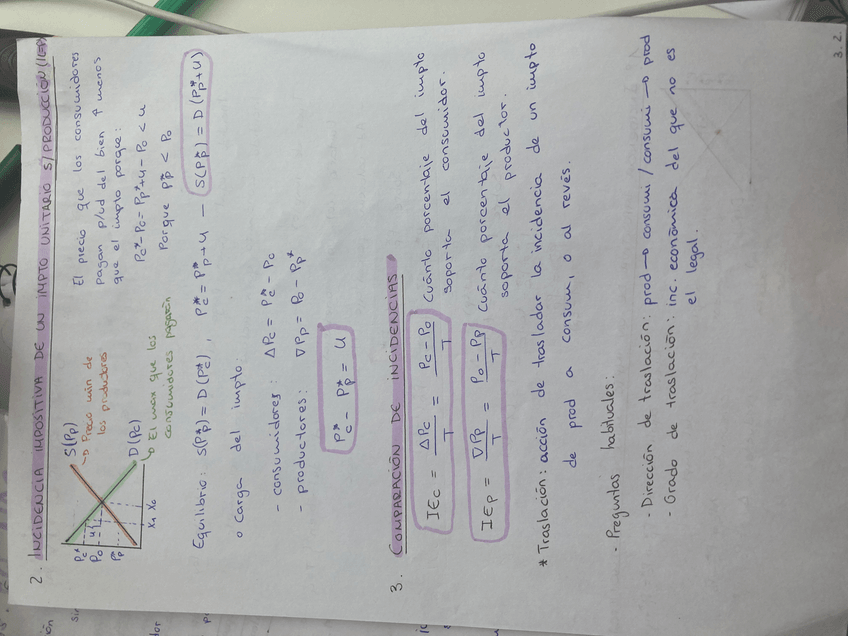 2. INCIDENCIA IMPOSITIVA DE UN IMPTO UNITARIO S/PRODUCCIÓN (IEP)
S(Pp)
→ Precio min de
los productores
D(Pc)
→ El max que los
consumidores pagarán
P*c
Po
P*p
u
X1 Xo
El precio que los consumidores
pagan p/ud del bien ↑ menos
que el impto porque:
Pc*-Po = Pp*+u - Po < u
Porque Pp* < Po
Equilibrio: S(Pp*) = D(Pc*) , Pc* = Pp* + u — S(Pp*) = D(Pp*+u)
o Carga del impto:
- consumidores: ΔPc = Pc* - Pc
- productores: ∇Pp = Po - Pp*
Pc* - Pp* = u
3. COMPARACIÓN DE INCIDENCIAS
IEc = ΔPc / T = Pc - Po / T Cuánto porcentaje del impto
soporta el consumidor.
IEp = ∇Pp / T = Po - Pp / T Cuánto porcentaje del impto
soporta el productor.
* Traslación: acción de trasladar la incidencia de un impto
de prod a consum, o al revés.
- Preguntas habituales:
- Dirección de traslación: prod → consumi / consumi → prod
- Grado de traslación: inc. económica del que no es
el legal.
3.2